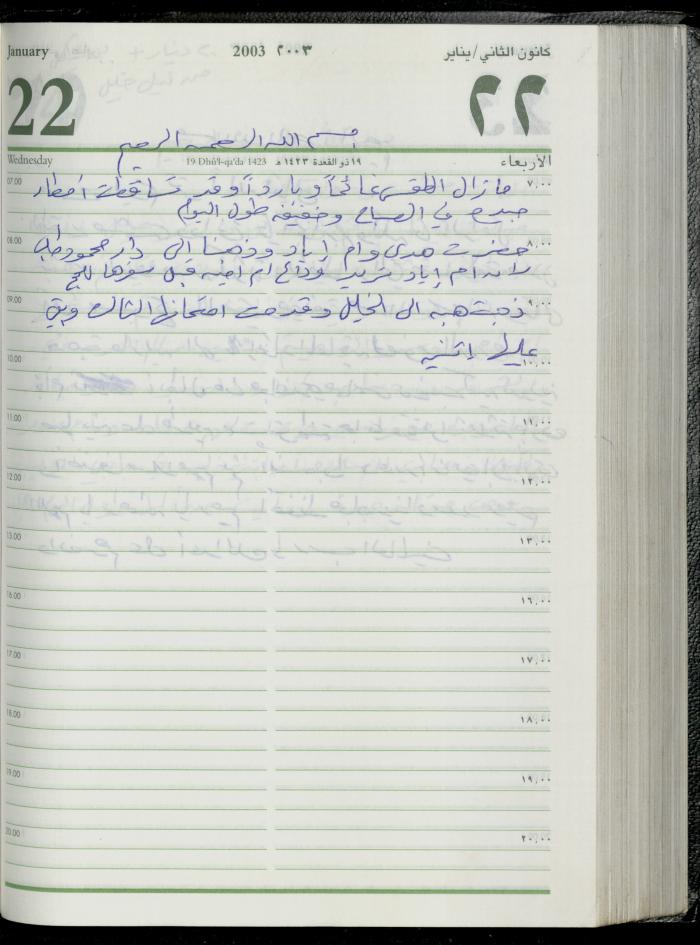 January 2003 ٢٠٠٣ كانون الثاني/يناير
22 ٢٢
بسم الله الرحمن الرحيم
Wednesday 19 Dhū'l-qa'da 1423 ١٩ ذو القعدة ١٤٢٣ هـ الأربعاء
07.00 ما زال الطقس غائماً وبارداً وقد تساقطت أمطار ٧,٠٠
جيدة في الصباح وخفيفة طول اليوم
08.00 حضرت هدى وام إياد وذهبنا الى دار محمود طه ٨,٠٠
لأن ام إياد تريد وداع ام امنه قبل سفرها للحج
09.00 ذهبت هبه الى الخليل وقدمت امتحانها الثالث وبقي ٩,٠٠
عليها إثنين
10.00 ١٠,٠٠
11.00 ١١,٠٠
12.00 ١٢,٠٠
13.00 ١٣,٠٠
16.00 ١٦,٠٠
17.00 ١٧,٠٠
18.00 ١٨,٠٠
19.00 ١٩,٠٠
20.00 ٢٠,٠٠